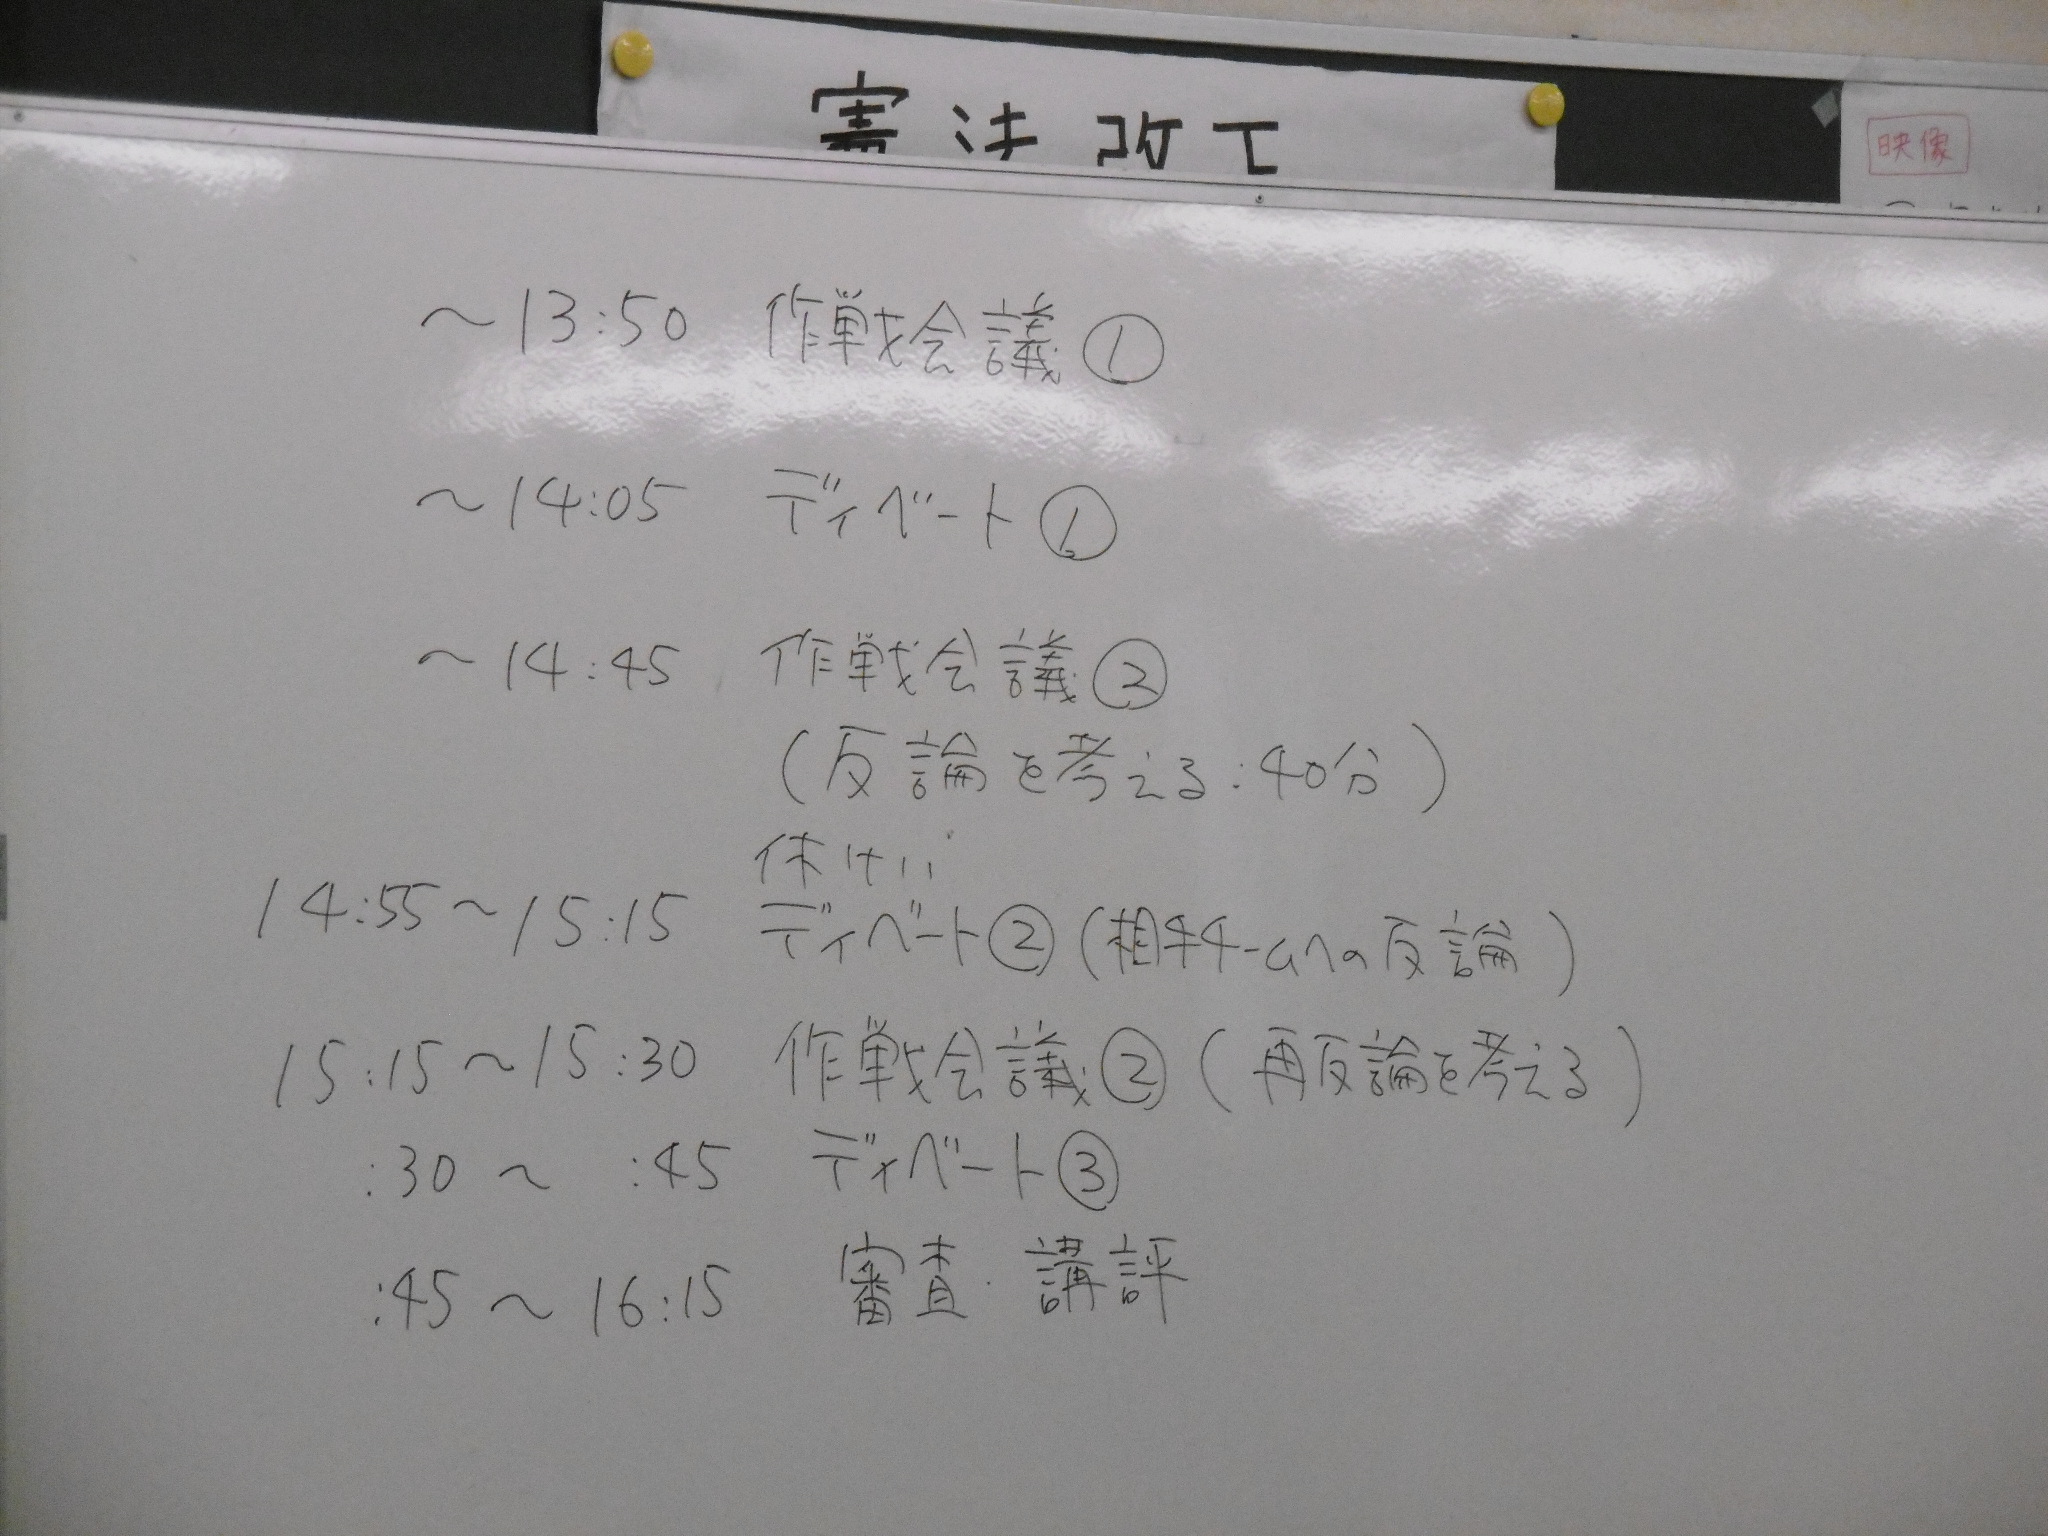 憲法改正
映像
〜13:50 作戦会議①
〜14:05 ディベート①
〜14:45 作戦会議②
(反論を考える:40分)
休けい
14:55〜15:15 ディベート②(相手チームへの反論)
15:15〜15:30 作戦会議②(再反論を考える)
:30〜 :45 ディベート③
:45〜16:15 審査・講評